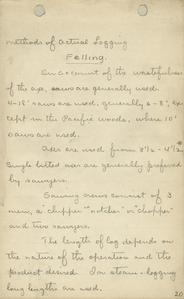 Methods of Actual Logging
Felling.
On account of the wastefulness
of the axe, saws are generally used.
4-18' saws are used, generally 6-8', ex
cept in the Pacific Woods, where 10'
saws are used.
Axes are used from 3½ - 4½
Single bitted axes are generally preferred
by sawyers.
Sawing crews consist of 3
men, a chipper "notcher" or "chopper"
and two sawyers.
The length of log depends on
the nature of the operation and the
product desired. In steam-logging
long lengths are used.